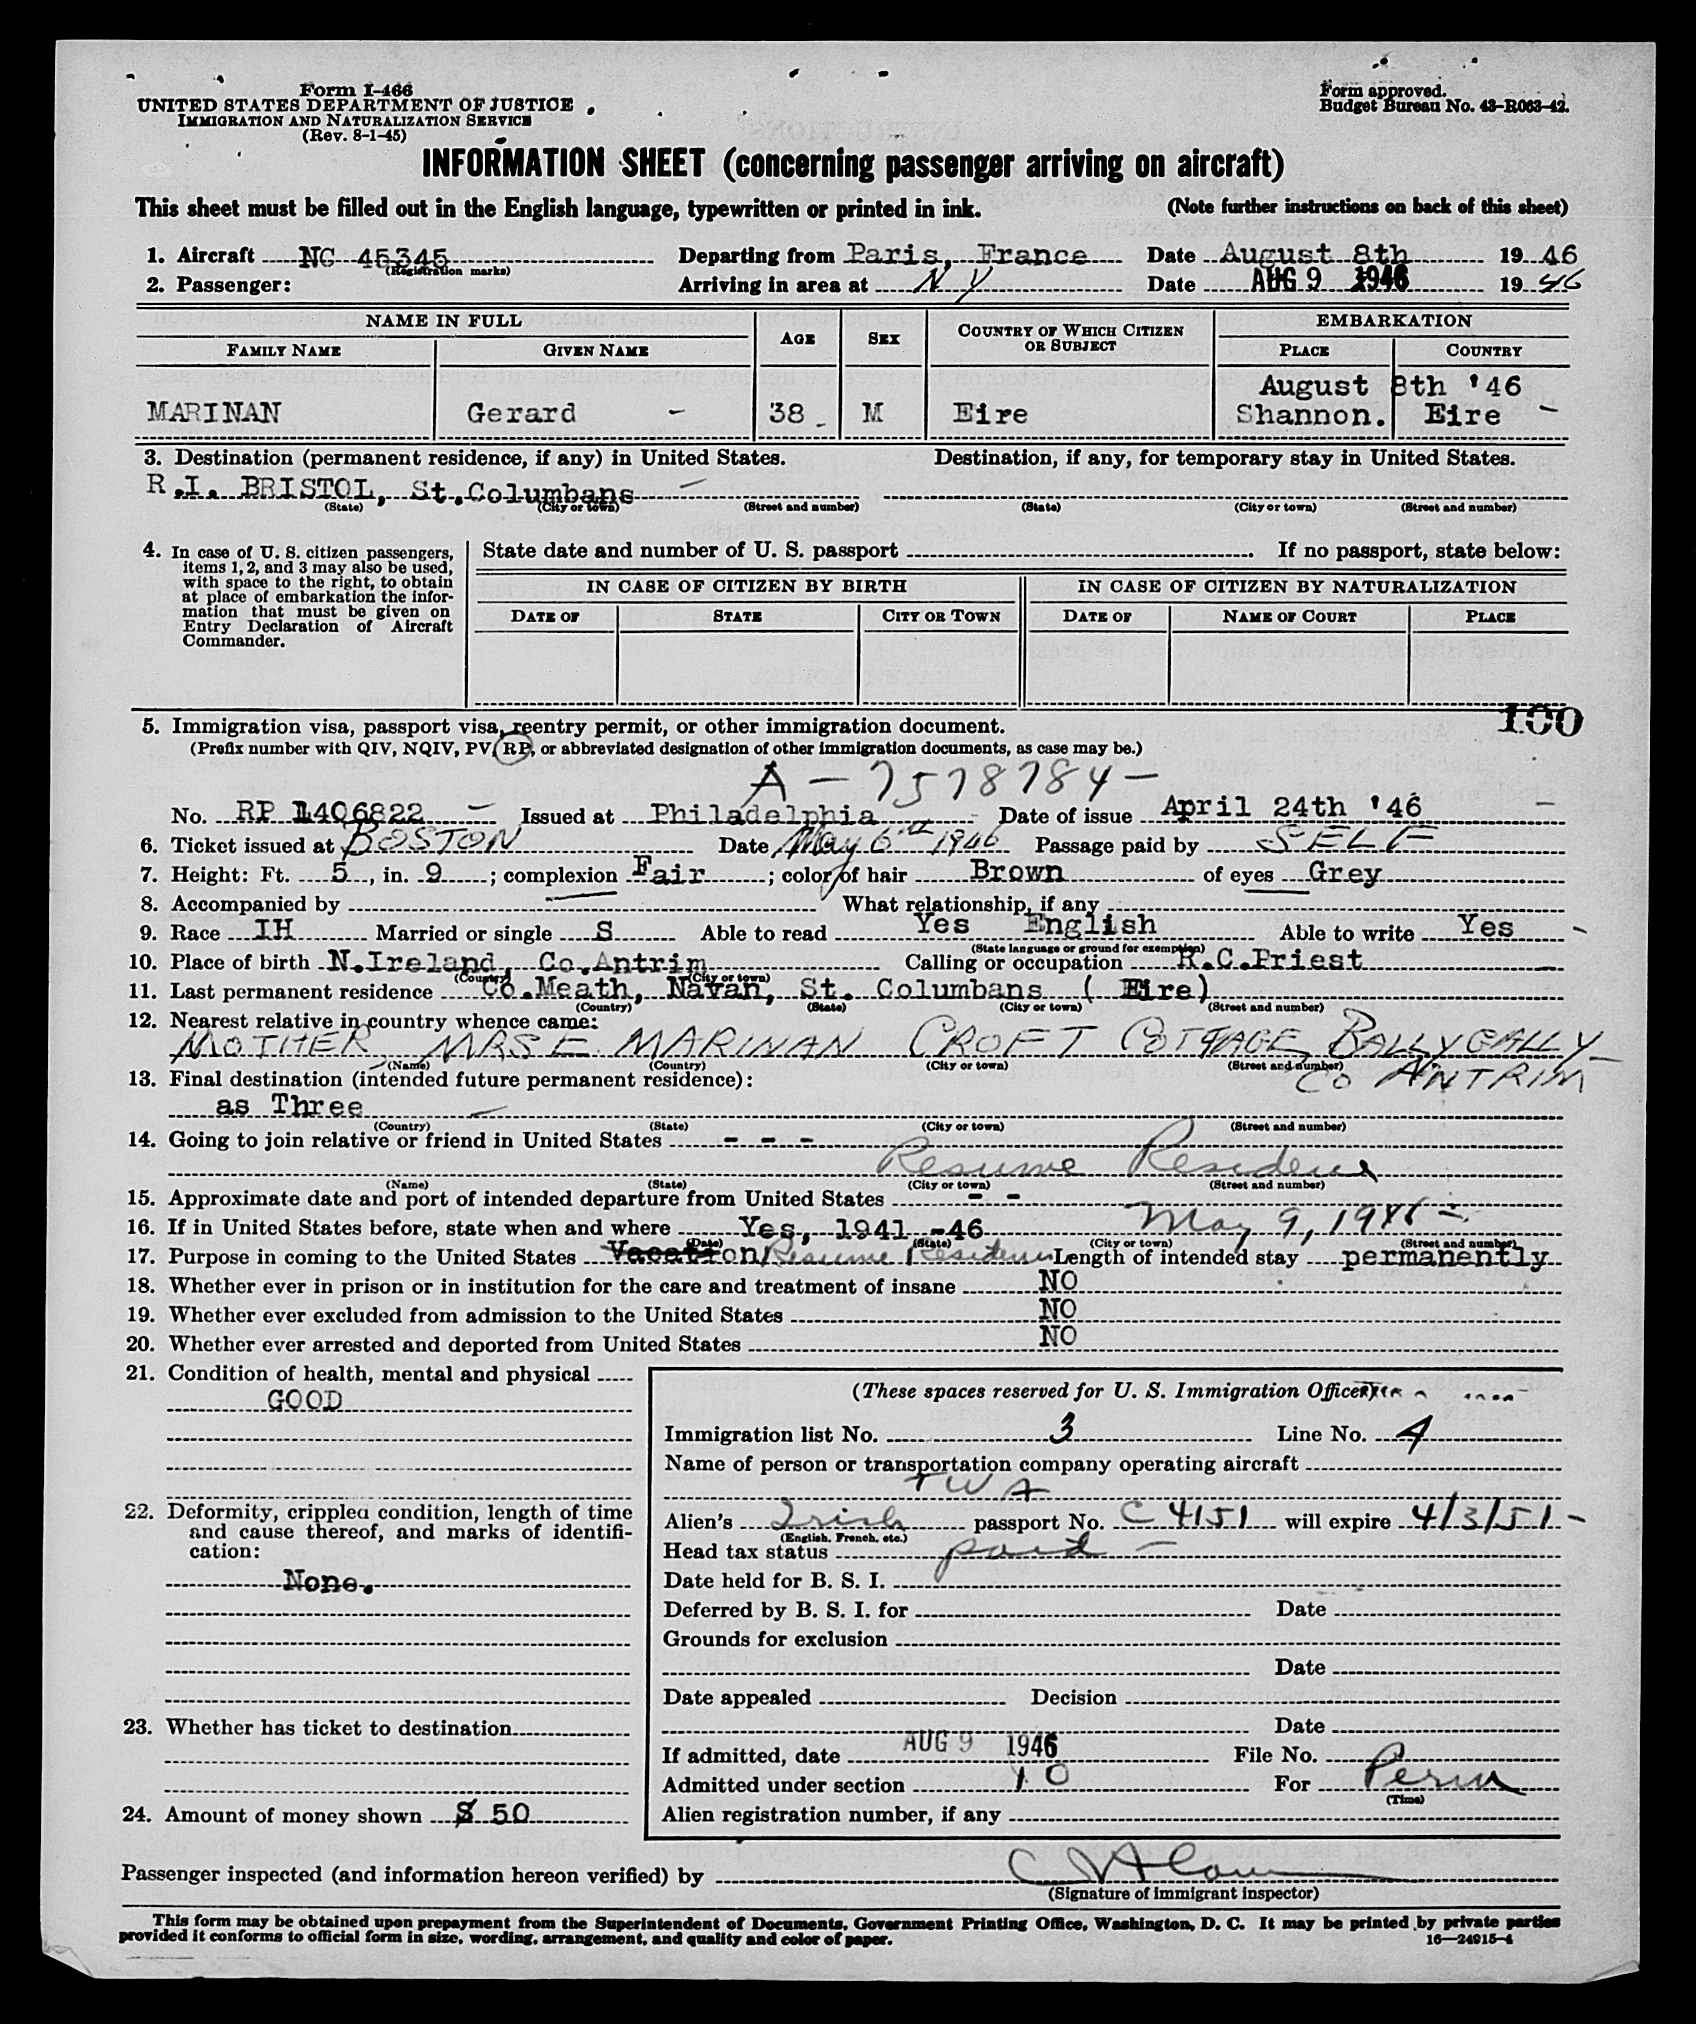 Form I-466
UNITED STATES DEPARTMENT OF JUSTICE
IMMIGRATION AND NATURALIZATION SERVICE
(Rev. 8-1-45)
Form approved.
Budget Bureau No. 43-R063-42.
INFORMATION SHEET (concerning passenger arriving on aircraft)
This sheet must be filled out in the English language, typewritten or printed in ink. (Note further instructions on back of this sheet)
1. Aircraft NC 45345 Departing from Paris, France Date August 8th 19 46
(Registration marks)
2. Passenger: Arriving in area at N Y Date AUG 9 1946 19 46
NAME IN FULL AGE SEX COUNTRY OF WHICH CITIZEN OR SUBJECT EMBARKATION
FAMILY NAME GIVEN NAME PLACE COUNTRY
August 8th '46
MARINAN Gerard - 38 M Eire Shannon. Eire -
3. Destination (permanent residence, if any) in United States. Destination, if any, for temporary stay in United States.
R.I. BRISTOL, St.Columbans -
(State) (City or town) (Street and number) (State) (City or town) (Street and number)
4. In case of U. S. citizen passengers, items 1, 2, and 3 may also be used, with space to the right, to obtain at place of embarkation the information that must be given on Entry Declaration of Aircraft Commander.
State date and number of U. S. passport . If no passport, state below:
IN CASE OF CITIZEN BY BIRTH IN CASE OF CITIZEN BY NATURALIZATION
DATE OF STATE CITY OR TOWN DATE OF NAME OF COURT PLACE
100
5. Immigration visa, passport visa, reentry permit, or other immigration document.
(Prefix number with QIV, NQIV, PV, RP, or abbreviated designation of other immigration documents, as case may be.)
A - 7578784 -
No. RP 1406822 - Issued at Philadelphia Date of issue April 24th '46 -
6. Ticket issued at BOSTON Date May 6th 1946 Passage paid by SELF
7. Height: Ft. 5, in. 9; complexion Fair; color of hair Brown of eyes Grey
8. Accompanied by What relationship, if any
9. Race IH Married or single S Able to read Yes English Able to write Yes -
(State language or ground for exemption)
10. Place of birth N.Ireland, Co.Antrim Calling or occupation R.C.Priest
(Country) (City or town)
11. Last permanent residence Co.Meath, Navan, St. Columbans ( Eire)
(Country) (State) (City or town) (Street and number)
12. Nearest relative in country whence came:
MOTHER, MRS E. MARINAN CROFT COTTAGE, BALLYGALLY
(Name) (Country) (City or town) (Street and number)
CO ANTRIM
13. Final destination (intended future permanent residence):
as Three
(Country) (State) (City or town) (Street and number)
14. Going to join relative or friend in United States - - -
Resume Residence
(Name) (State) (City or town) (Street and number)
15. Approximate date and port of intended departure from United States - -
16. If in United States before, state when and where Yes, 1941 -46 May 9, 1946 -
(Date) (State) (City or town) (Street and number)
17. Purpose in coming to the United States Vacation/Resume Residence Length of intended stay permanently
18. Whether ever in prison or in institution for the care and treatment of insane NO
19. Whether ever excluded from admission to the United States NO
20. Whether ever arrested and deported from United States NO
21. Condition of health, mental and physical
GOOD
22. Deformity, crippled condition, length of time and cause thereof, and marks of identification:
None.
23. Whether has ticket to destination
24. Amount of money shown $ 50
(These spaces reserved for U. S. Immigration Officer)
Immigration list No. 3 Line No. 4
Name of person or transportation company operating aircraft
TWA
Alien's Irish passport No. C 4151 will expire 4/3/51 -
(English, French, etc.)
Head tax status paid -
Date held for B. S. I.
Deferred by B. S. I. for Date
Grounds for exclusion
Date
Date appealed Decision
Date
If admitted, date AUG 9 1946 File No.
Admitted under section 10 For Perm
(Time)
Alien registration number, if any
Passenger inspected (and information hereon verified) by
(Signature of immigrant inspector)
This form may be obtained upon prepayment from the Superintendent of Documents, Government Printing Office, Washington, D. C. It may be printed by private parties
provided it conforms to official form in size, wording, arrangement, and quality and color of paper.
16—24915-4